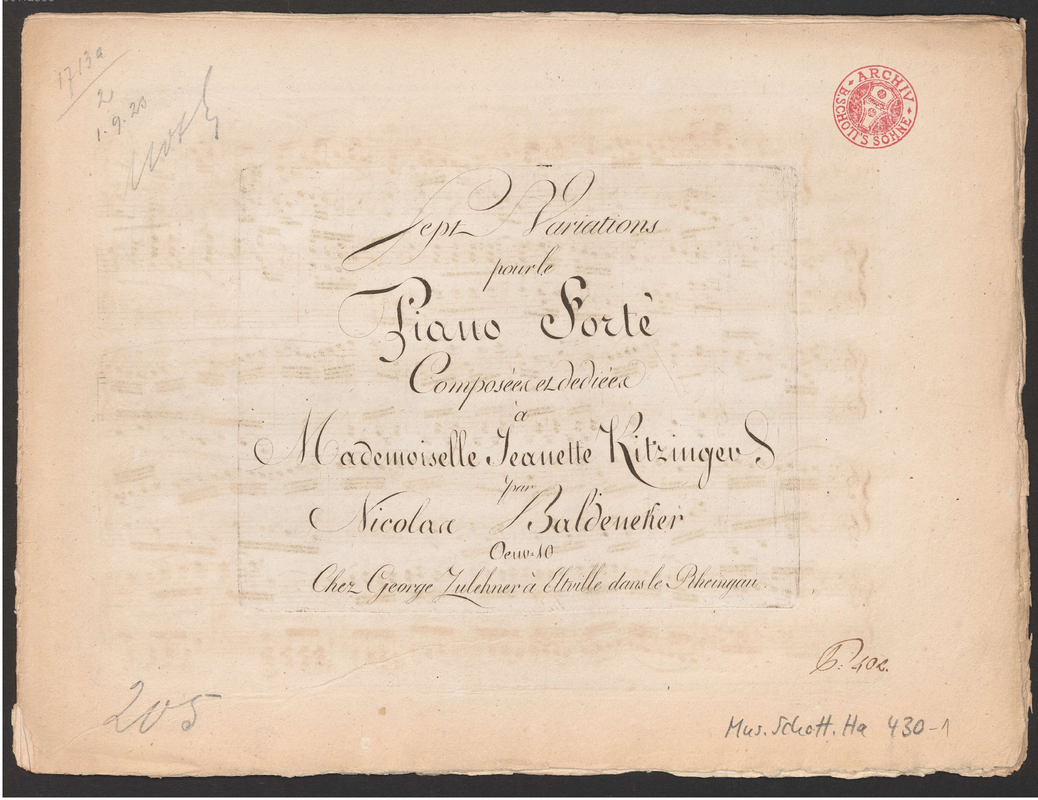 1713a
2
1.9.20
ARCHIV
B. SCHOTT'S SÖHNE
Sept Variations
pour le
Piano Fortè
Composées et dediées
à
Mademoiselle Jeanette Kitzinger
par
Nicolas Baldeneker
Oeuv. 10
Chez George Zulehner à Eltville dans le Rheingau.
205
Mus. Schott. Ha 430-1